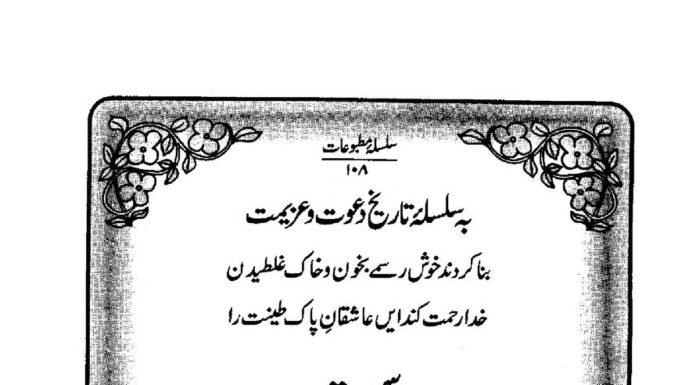 سلسلۂ مطبوعات
۱۰۸
بہ سلسلۂ تاریخ دعوت و عزیمت
بنا کردند خوش رسمے بخون و خاک غلطیدن
خدا رحمت کند ایں عاشقانِ پاک طینت را